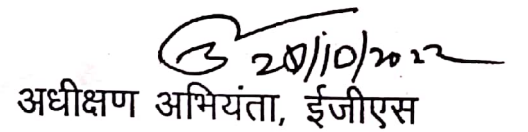 28/10/2022
अधीक्षण अभियंता, ईजीएस